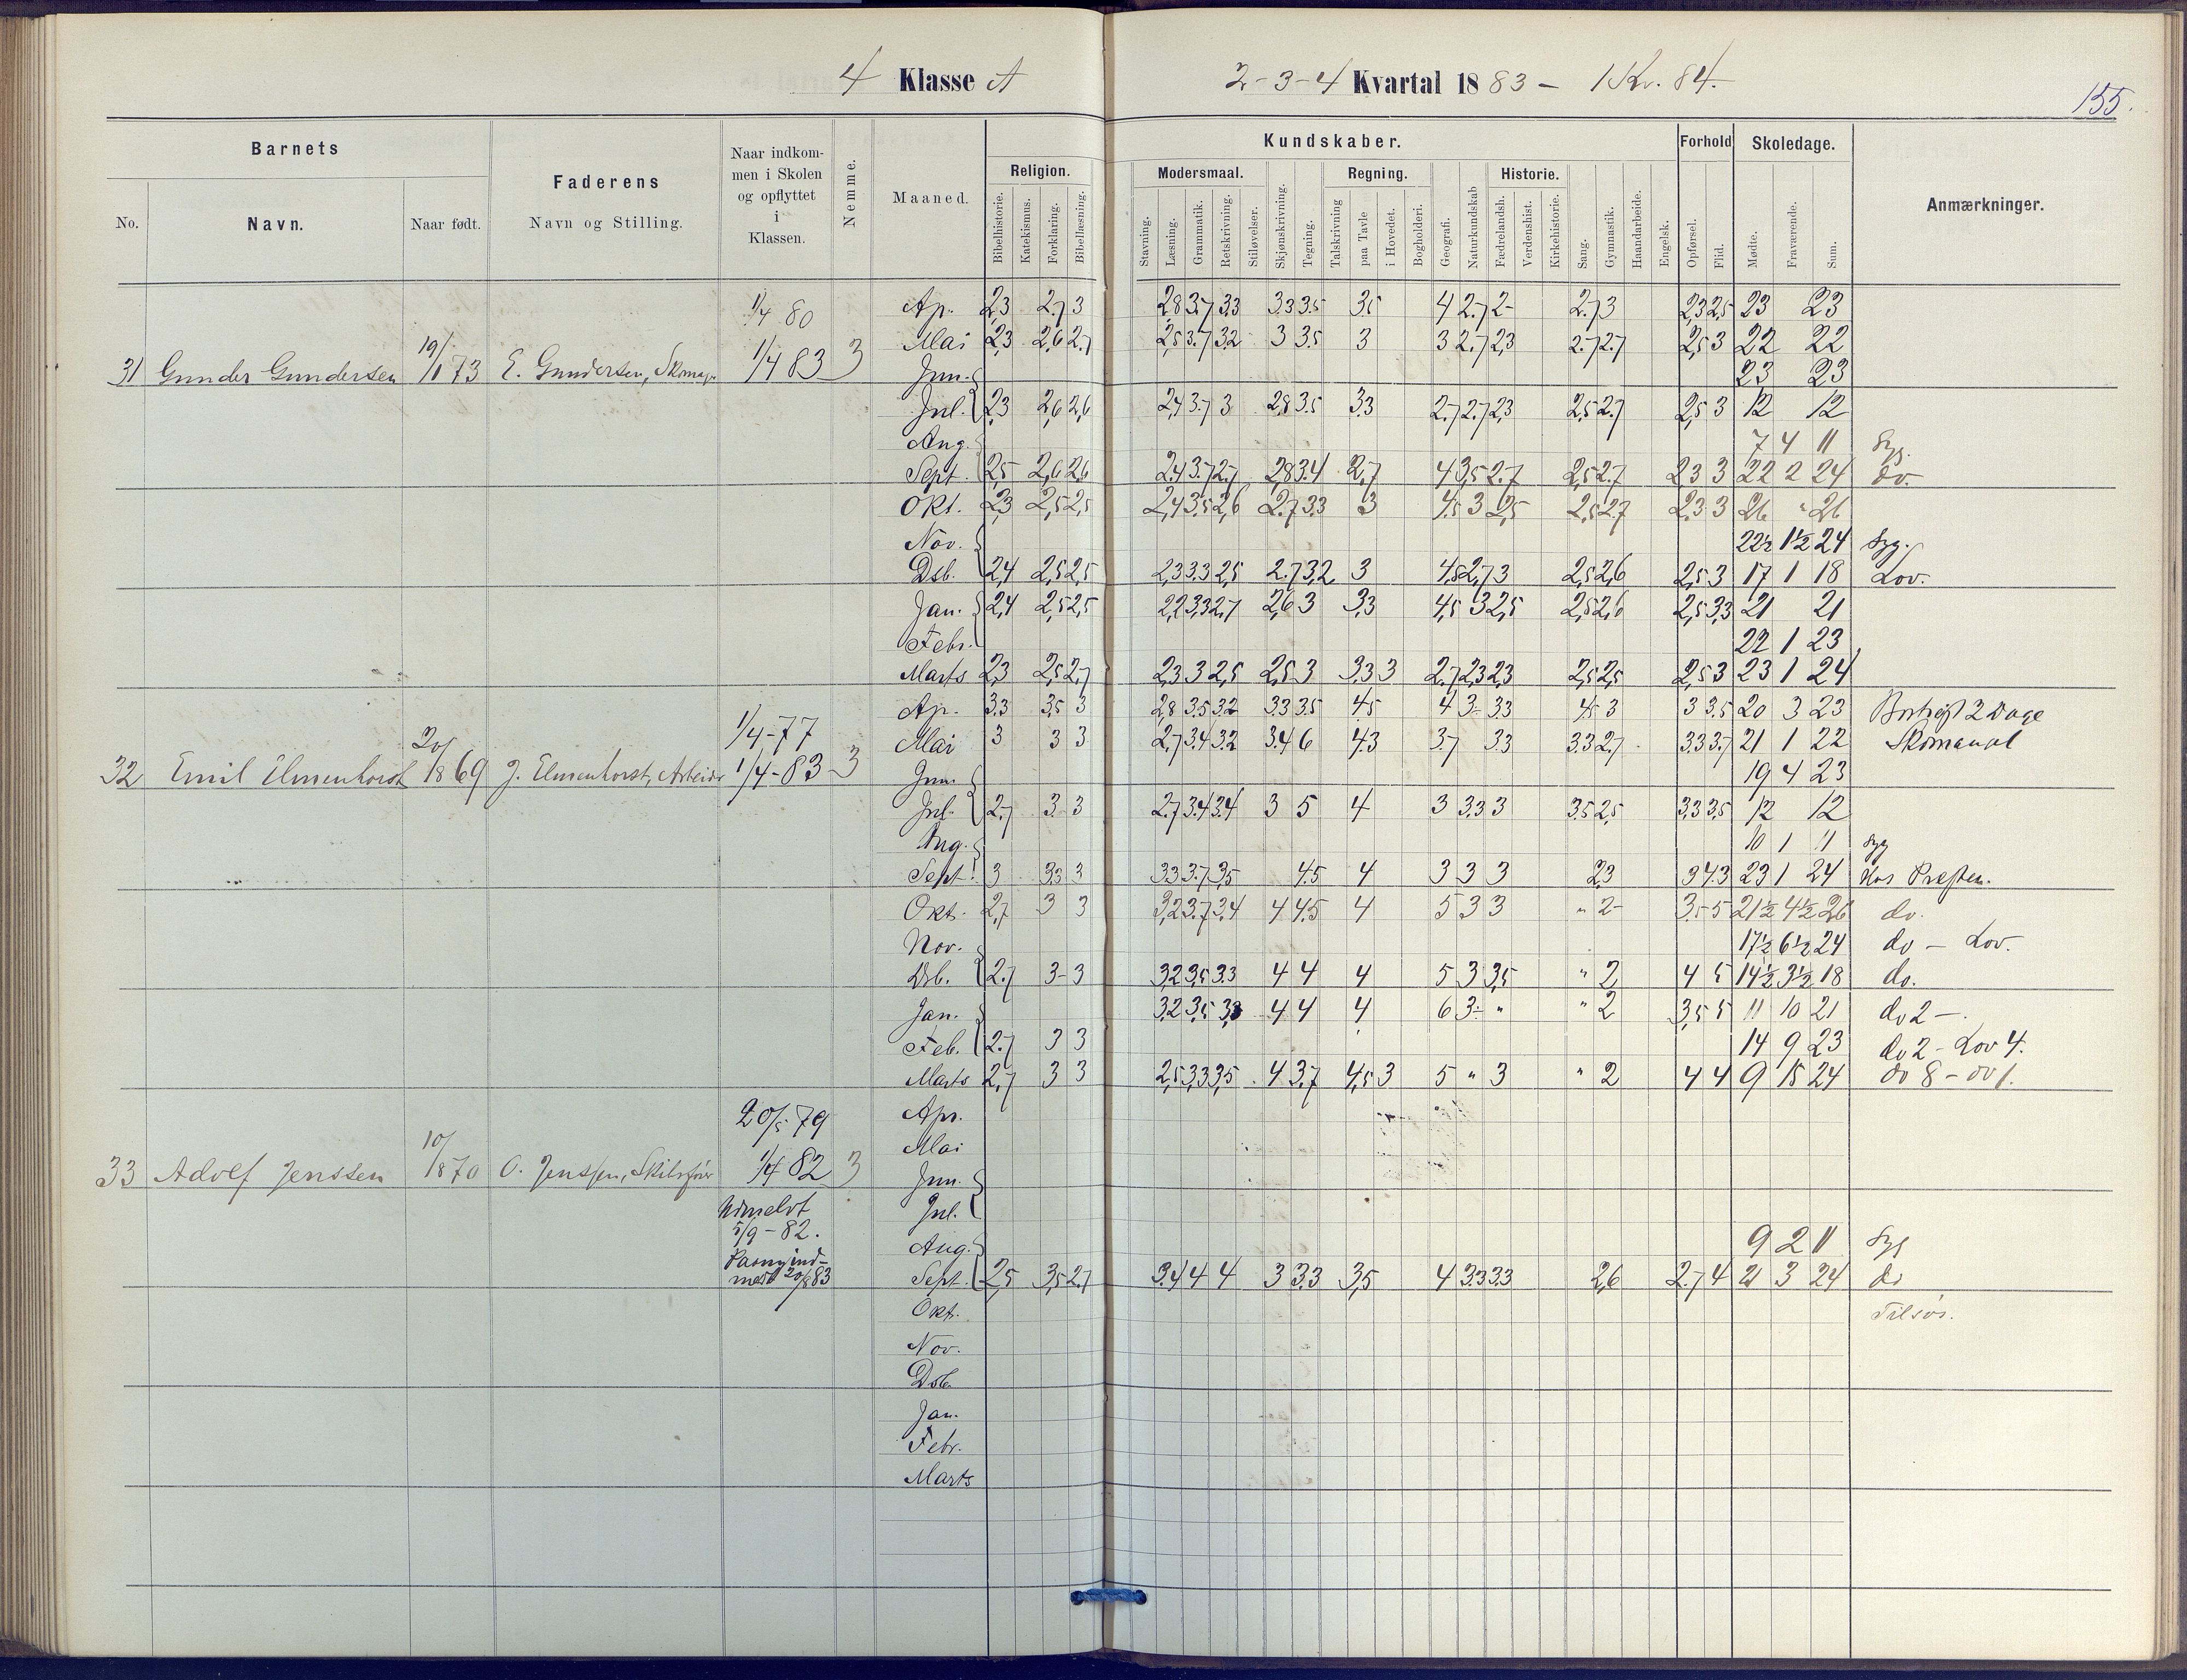 4 Klasse A
2-3-4 Kvartal 1883 - 1 Kv. 84.
155.
Barnets
No.
Navn.
Naar født.
Faderens
Navn og Stilling.
Naar indkom-
men i Skolen
og opflyttet
i
Klassen.
Nemme.
Maaned.
Kundskaber.
Religion.
Bibelhistorie.
Katekismus.
Forklaring.
Bibellæsning.
Modersmaal.
Stavning.
Læsning.
Grammatik.
Retskrivning.
Stiløvelser.
Skjønskrivning.
Tegning.
Regning.
Talskrivning
paa Tavle
i Hovedet.
Bogholderi.
Geografi.
Naturkundskab
Historie.
Fædrelandsh.
Verdenshist.
Kirkehistorie.
Sang.
Gymnastik.
Haandarbeide.
Engelsk.
Forhold
Opførsel.
Flid.
Skoledage.
Mødte.
Fraværende.
Sum.
Anmærkninger.
31 Gunder Gundersen 19/1 73 E. Gundersen, Skomag. 1/4 80 1/4 83 3
Ap. 2,3 2.7 3 2,8 3.7 3,3 3.3 3.5 3.5 4 2.7 2- 2.7 3 2,3 2,5 23 23
Mai 2,3 2,6 2.7 2,5 3.7 3.2 3 3.5 3 3 2.7 2,3 2.7 2.7 2,5 3 22 22
Jun. 23 23
Jul. 2,3 2,6 2,6 2,4 3.7 3 2,8 3.5 3.3 2.7 2.7 2,3 2,5 2.7 2,5 3 12 12
Aug. 7 4 11 Syg.
Sept. 2,5 2,6 2,6 2.4 3.7 2.7 2,8 3.4 2,7 4 3,5 2.7 2,5 2.7 2 3 3 22 2 24 do.
Okt. 2,3 2,5 2,5 2,4 3.5 2,6 2.7 3.3 3 4.5 3 2,5 2,5 2.7 2,3 3 26 " 26
Nov. 22½ 1½ 24 Syg.
Dsb. 2,4 2,5 2,5 2,3 3.3 2,5 2.7 3,2 3 4,5 2,7 3 2,5 2,6 2,5 3 17 1 18 Lov.
Jan. 2,4 2,5 2,5 2,2 3,3 2,7 2,6 3 3,3 4,5 3 2,5 2,5 2,6 2,5 3,3 21 21
Febr. 22 1 23
Marts 2,3 2,5 2,7 2,3 3 2,5 2,5 3 3,3 3 2.7 2,3 2,3 2,5 2,5 2,5 3 23 1 24
32 Emil Elmenhorst 20/1869 J. Elmenhorst, Arbeids 1/4-77 1/4-83 3
Ap. 3.3 3,5 3 2,8 3.5 3.2 3.3 3.5 4.5 4 3- 3.3 4.5 3 3 3.5 20 3 23 2 Dage
Mai 3 3 3 2,7 3.4 3.2 3.4 6 4.3 3.7 3.3 3.3 2.7 3.3 3.7 21 1 22
Jun. 19 4 23
Jul. 2.7 3. 3 2.7 3.4 3.4 3 5 4 3 3.3 3 3.5 2,5 3,3 3,5 12 12
Aug. 10 1 11 Syg
Sept. 3 3.3 3 3.3 3.7 3,5 4.5 4 3 3 3 2,3 3 4.3 23 1 24 hos Præsten.
Okt. 2,7 3 3 3,2 3.7 3,4 4 4.5 4 5 3 3 " 2- 3.5 5 21½ 4½ 26 do.
Nov. 17½ 6½ 24 do - Lov.
Dsb. 2.7 3-3 3,2 3,5 3.3 4 4 4 5 3 3,5 " 2 4 5 14½ 3½ 18 do.
Jan. 3,2 3,5 3,3 4 4 4 6 3- " " 2 3,5 5 11 10 21 do 2 -.
Feb. 2.7 3 3 14 9 23 do 2 - Lov 4.
Marts 2,7 3 3 2,5 3,3 3,5 4 3,7 4,5 3 5 " 3 " 2 4 4 9 15 24 do 8 - do 1.
33 Adolf Jenssen 10/1870 O. Jenssen, 20/5 79 1/4 82 3
Apr.
Mai
Jun.
Udmeldt
Jul.
5/9-82.
Aug. 9 2 11 Syg
Paany ind-
meldt 20/8 83
Sept. 2,5 3,5 2.7 3.4 4 4 3 3.3 3,5 4 3.3 3.3 2,6 2.7 4 21 3 24 do
Okt. Tilsøs.
Nov.
Dsb.
Jan.
Febr.
Marts